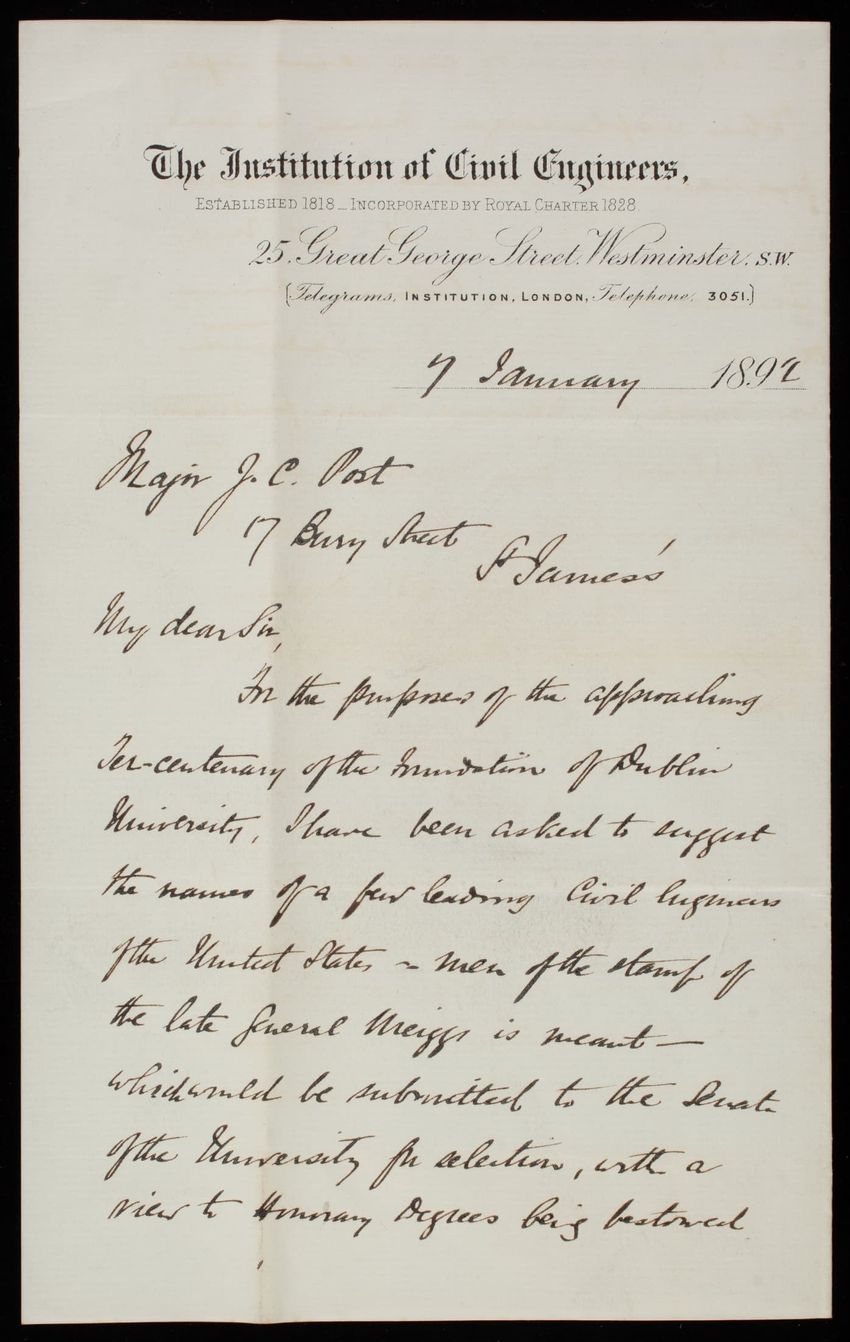 The Institution of Civil Engineers,
ESTABLISHED 1818 _ INCORPORATED BY ROYAL CHARTER 1828.
25. Great George Street. Westminster. S.W.
(Telegrams, INSTITUTION, LONDON, Telephone, 3051.)
7 January 1892
Major J. C. Post
17 Bury Street
St James's
My dear Sir,
For the purposes of the approaching
Ter-centenary of the Foundation of Dublin
University, I have been asked to suggest
the names of a few leading Civil Engineers
of the United States - men of the stamp of
the late General Meiggs is meant —
which would be submitted to the Senate
of the University for selection, with a
view to Honorary Degrees being bestowed